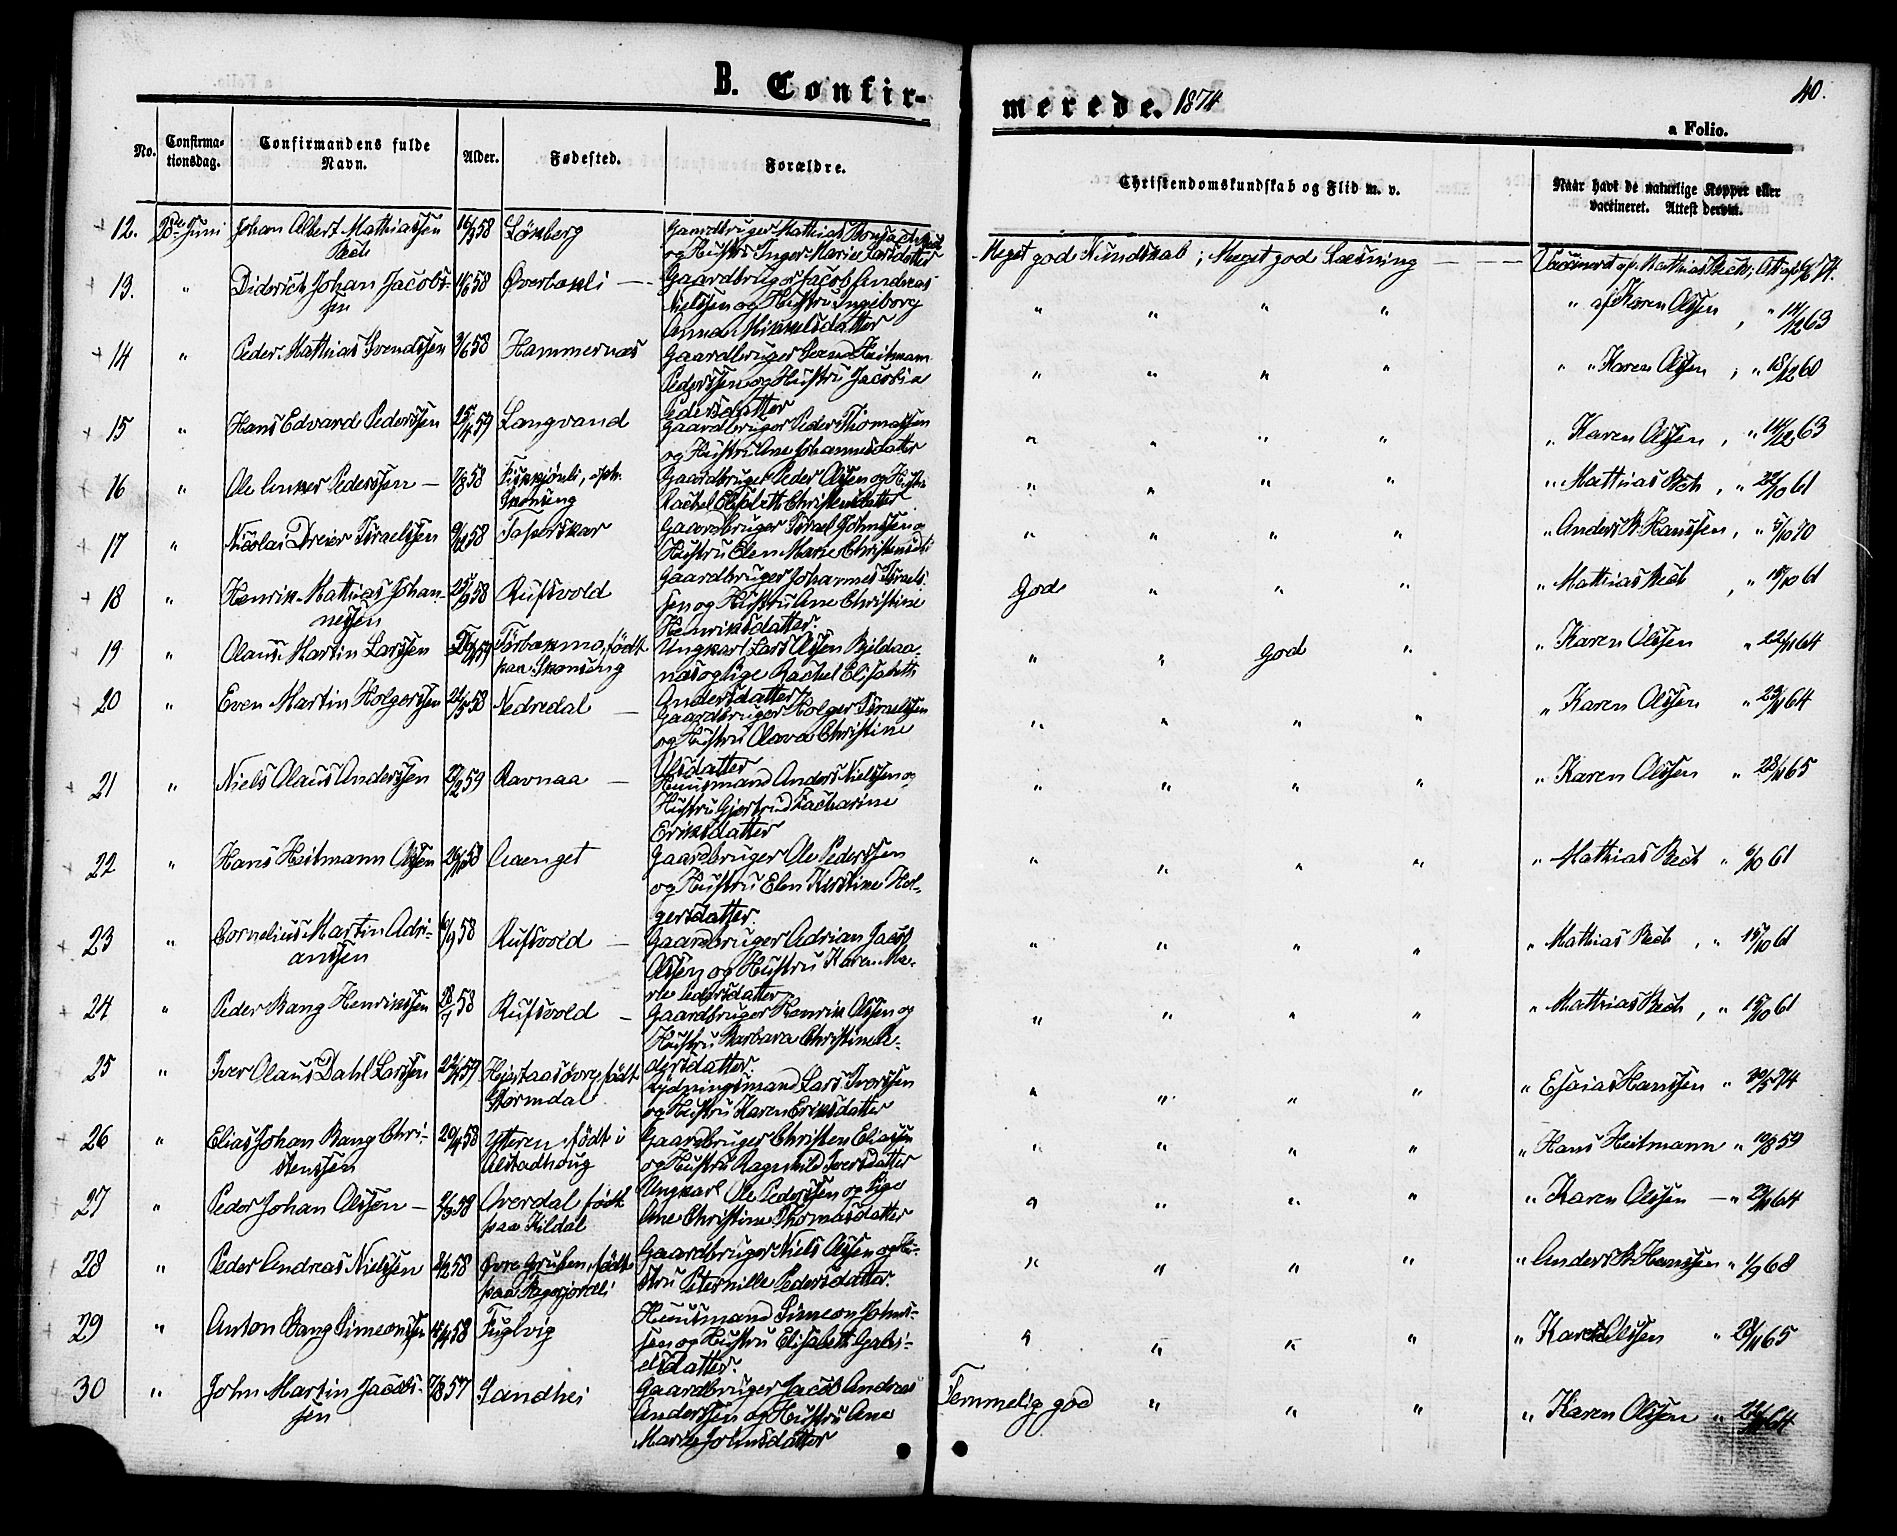 B. Confir-
merede. 1874
40.
a Folio.
No.
Confirma-
tionsdag.
Confirmandens fulde
Navn.
Alder.
Fødested.
Forældre.
Christendomskundskab og Flid m. v.
Naar havt de naturlige Kopper eller
vaccineret. Attest derom.
12. 28de Juni Johan Albert Mathiassen
Bech
16/3 58 Lønberg
Gaardbruger Mathias
og Hustru Inger Marie Larsdatter
Meget god Kundskab; Meget god Læsning — — Vaccineret af Mathias Bech; Att.
13. " Diderich Johan Jacobs-
sen
58 Øverbakli —
Gaardbruger Jacob Andreas
Nielssen og Hustru Ingeborg
Anna Mikkelsdatter
" " " " " af Karen Olssen, " 14/12 63
14 " Peder Mathias Svendssen 58 Hammernæs
Gaardbruger Svend Heitmann
Pederssen og Hustru Jacobine
Pedersdatter
" " " " " " Karen Olssen, " 18/12 60
15 " Hans Edvard Pederssen 25/4 59 Langvand
Gaardbruger Peder Thomassen
og Hustru Ane Johannesdatter
" " " " " Karen Olssen, " 14/12 63
16 " Ole Anker Pederssen — 58
Skonseng
Gaardbruger Peder Olssen og Hustru
Rachel Elisabeth Christensdatter
" " " " " Mathias Bech, " 22/10 61
17 " Nicolai Dreier Israelssen 58 Tapskar
Gaardbruger Israel Johnssen og
Hustru Elen Marie Christensd.
" " " " " Anders B. Hanssen, " 5/10 70
18 " Henrik Mathias Johan-
nessen
25/9 58 Rufsvold
Gaardbruger Johannes Israels-
sen og Hustru Ane Christine
Henriksdatter.
God " " " " Mathias Bech, " 15/10 61
19 " Olaus Martin Larssen 59 født
paa Skonseng
Ungkarl Lars Olssen Bjldaa-
næs og Pige Rachel Elisabeth
Andersdatter
" " God " " Karen Olssen " 22/11 64
20 " Even Martin Holgerssen 21/5 58 Nedredal —
Gaardbruger Holger Israelssen
og Hustru Olava Christine
Olsdatter
" " " " " Karen Olssen " 23/11 64
21 " Niels Olaus Anderssen 59 Ravnaa —
Huusmand Anders Nielssen og
Hustru Gjertrud Zacharine
Eriksdatter
" " " " " Karen Olssen " 28/11 65
22 " Hans Heitmann Olssen 58 Aaenget
Gaardbruger Ole Pederssen
og Hustru Elen Kirstine Hol-
gersdatter.
" " " " " Mathias Bech " 6/10 61
23 " Cornelius Martin Adri-
anssen
58 Rufsvold —
Gaardbruger Adrian Jacob
Olssen og Hustru Karen Ma-
rie Pedersdatter
" " " " " Mathias Bech, " 15/10 61
24 " Peder Bang Henrikssen 28/7 58 Rufsvold —
Gaardbruger Henrik Olssen og
Hustru Barbara Christine Pe-
dersdatter.
" " " " " Mathias Bech, " 15/10 61
25 " Iver Olaus Dahl Larssen 59 født
Stormdal
Rydningsmand Lars Iverssen
og Hustru Karen Eriksdatter
" " " " " Esaias Hanssen " 30/5 74
26 " Elias Johan Bang Chri-
stenssen
58 Ytteren, født i
Alstadhoug
Gaardbruger Christen Eliassen
og Hustru Ragnhild Iversdatter
" " " " " Hans Heitmann " 10/8 59
27 " Peder Johan Olssen — 58 Overdal, født
paa Kildal
Ungkarl Ole Pederssen og Pige
Ane Christine Thomasdatter
" " " " " Karen Olssen — " 23/11 64
28 " Peder Andreas Nielssen 58 Øvre Gruben, født
paa
Gaardbruger Niels Olssen og Hu-
stru Peternille Pedersdatter.
" " " " " Anders B. Hanssen " 1/9 68
29 " Anton Bang Simeonssen 58 Fuglvig
Huusmand Simeon Johns-
sen og Hustru Elisabeth Gabri-
elsdatter.
" " " " " Karen Olssen " 28/11 65
30 " John Martin Jacobs-
sen
7/8 57 Sandhei
Gaardbruger Jacob Andreas
Anderssen og Hustru Ane
Marie Johnsdatter
Temmelig god " " " " Karen Olssen " 64